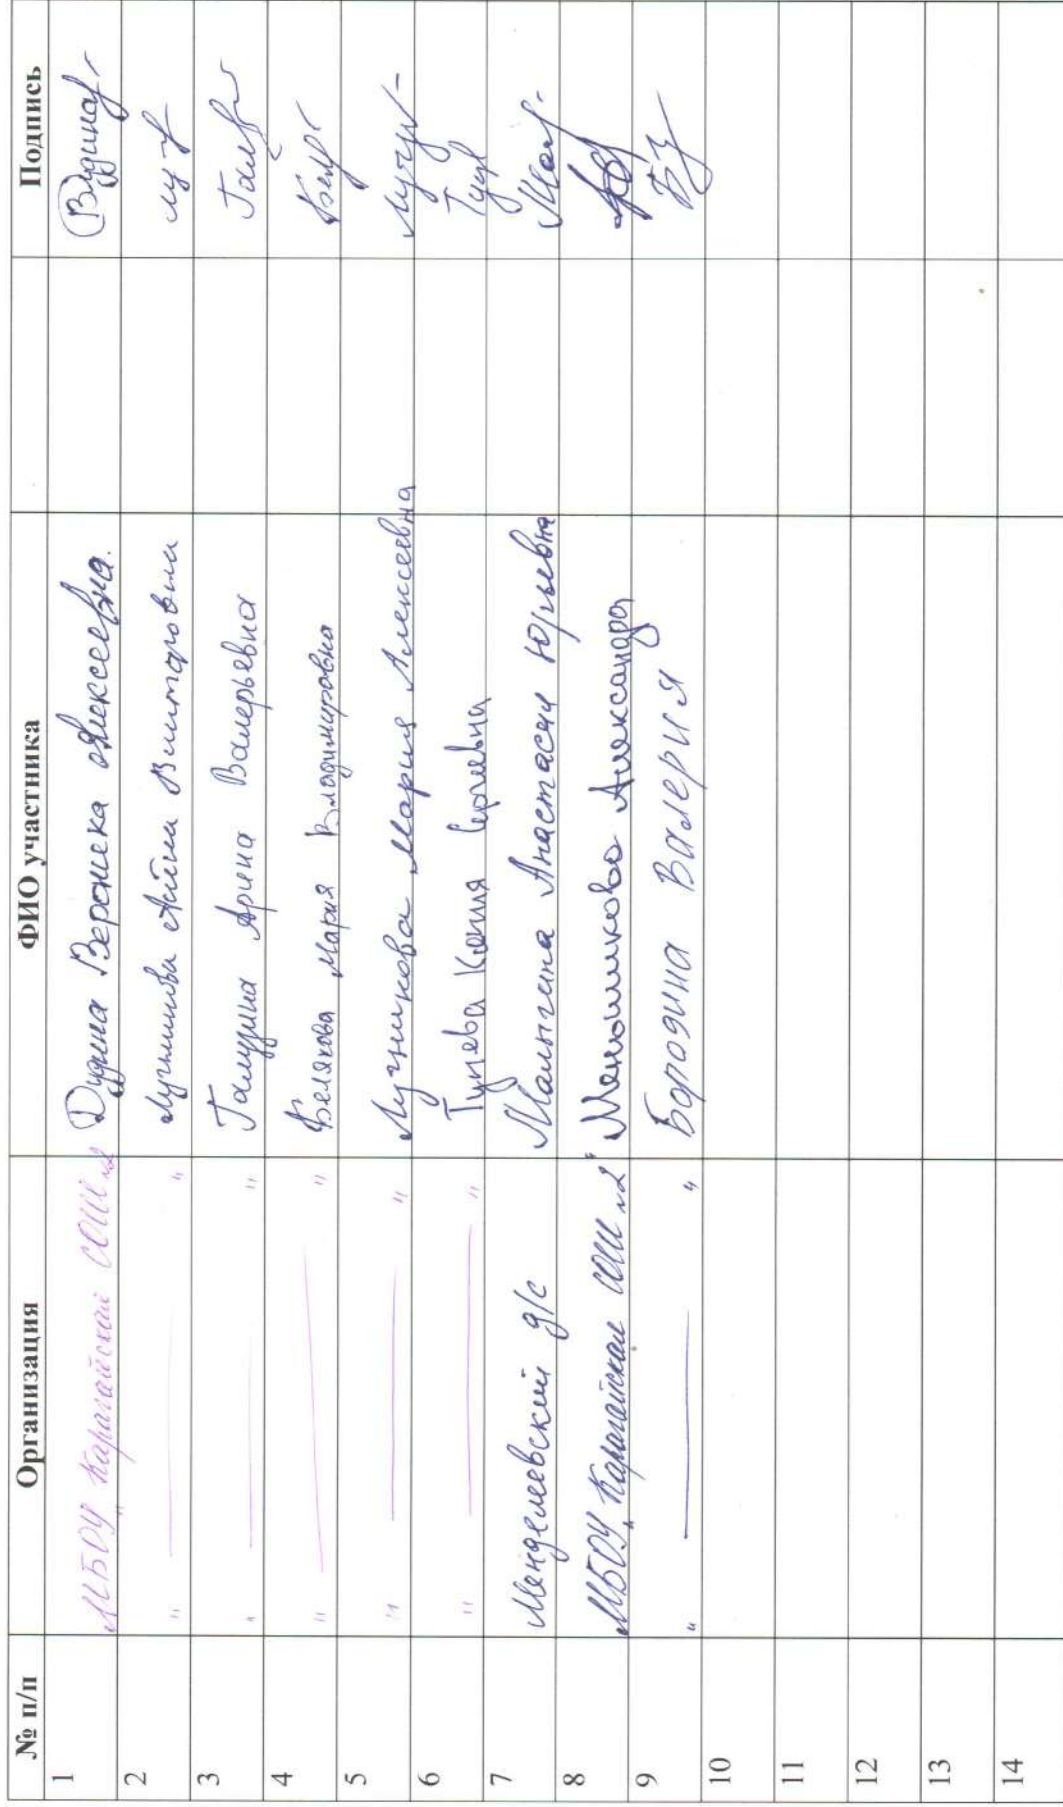 № п/п Организация ФИО участника Подпись
1 МБОУ „Карагайская СОШ №2 Дудина Вероника Алексеевна.
2 " — " Лучникова Алина Викторовна Луч
3 " — " Галурина Арина Валерьевна
4 " — " Белякова Мария Владимировна
5 " — " Лучникова Мария Алексеевна
6 " — " Гунева Ксения Сергеевна
7 Менделеевский д/с Малыгина Анастасия Юрьевна
8 МБОУ „Карагайская СОШ №2" Меньшикова Александра
9 " — " Бородина Валерия
10
11
12
13
14